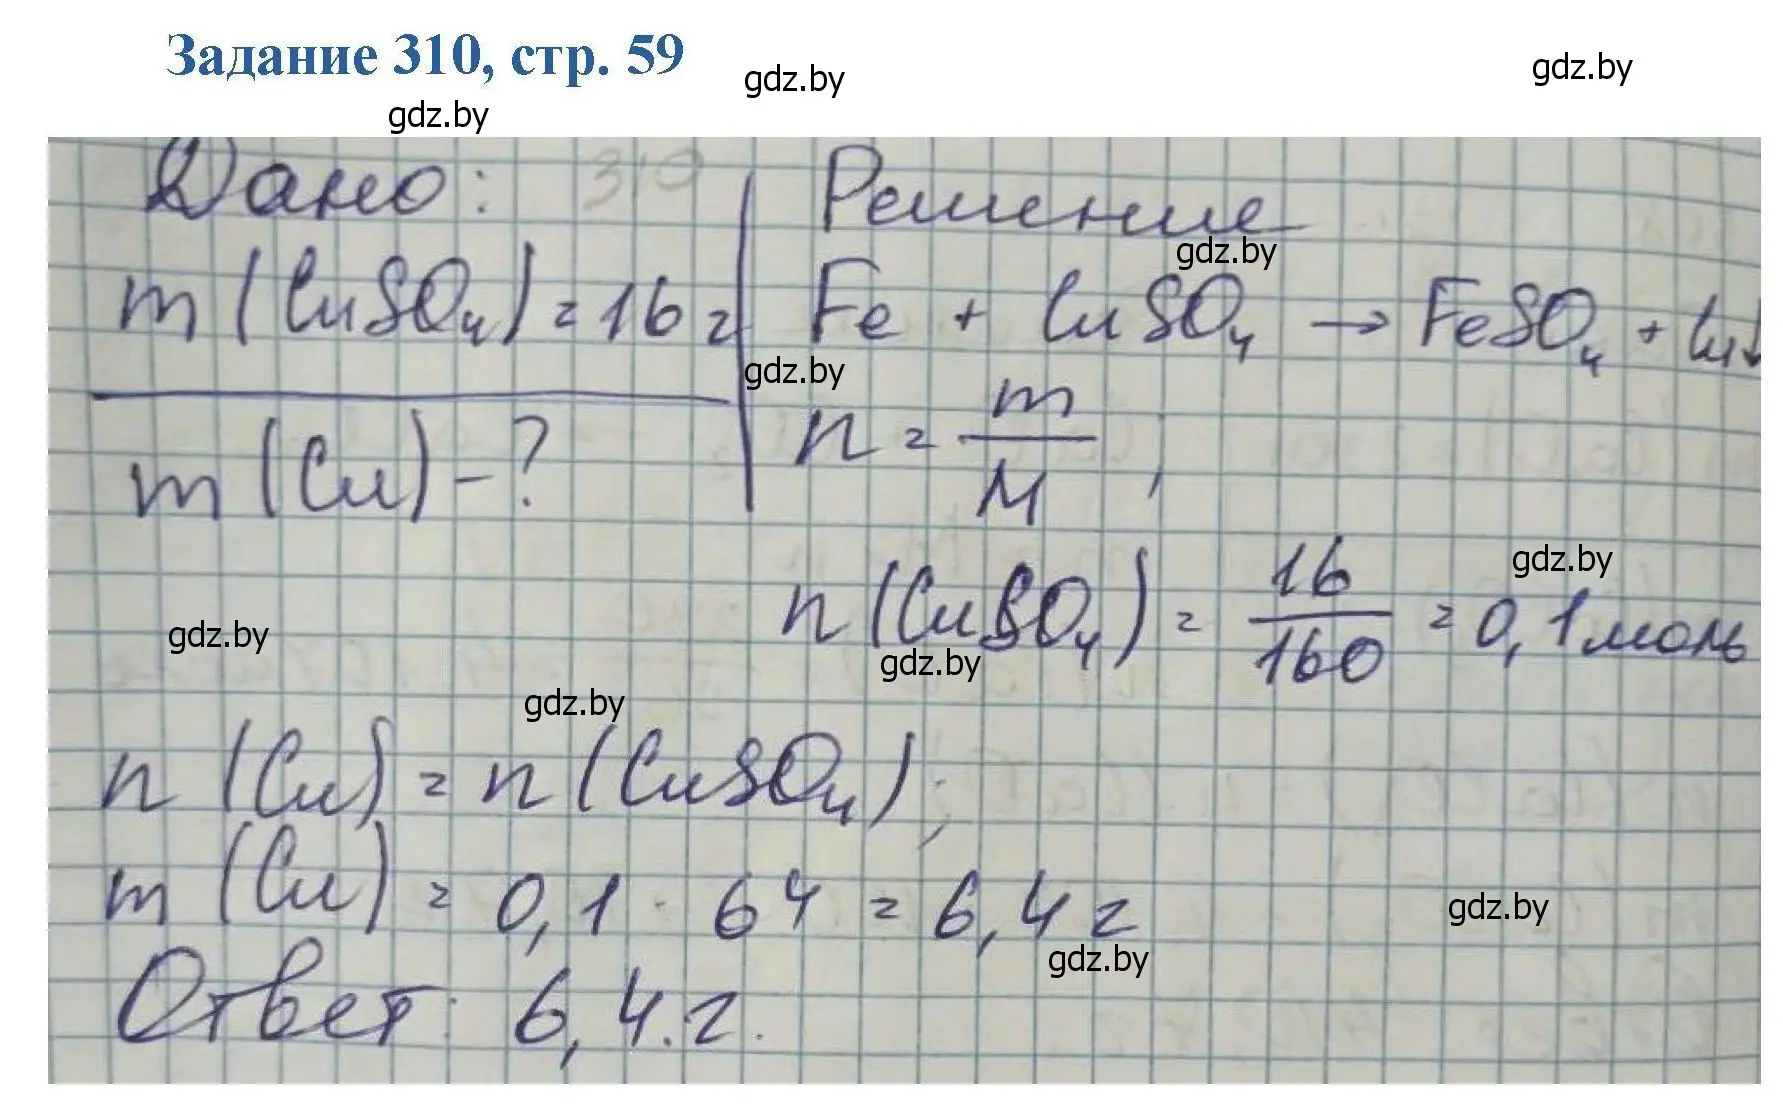 Задание 310, стр. 59
gdz.by
gdz.by
gdz.by
Дано: 310
m(CuSO₄)=16 г
m(Cu)-?
Решение
gdz.by
Fe + CuSO₄ → FeSO₄ + Cu↓
gdz.by
n = m/M ;
gdz.by
n(CuSO₄) = 16/160 = 0,1 моль
gdz.by
gdz.by
gdz.by
n(Cu) = n(CuSO₄);
m(Cu) = 0,1 · 64 = 6,4 г
gdz.by
gdz.by
Ответ: 6,4.г.